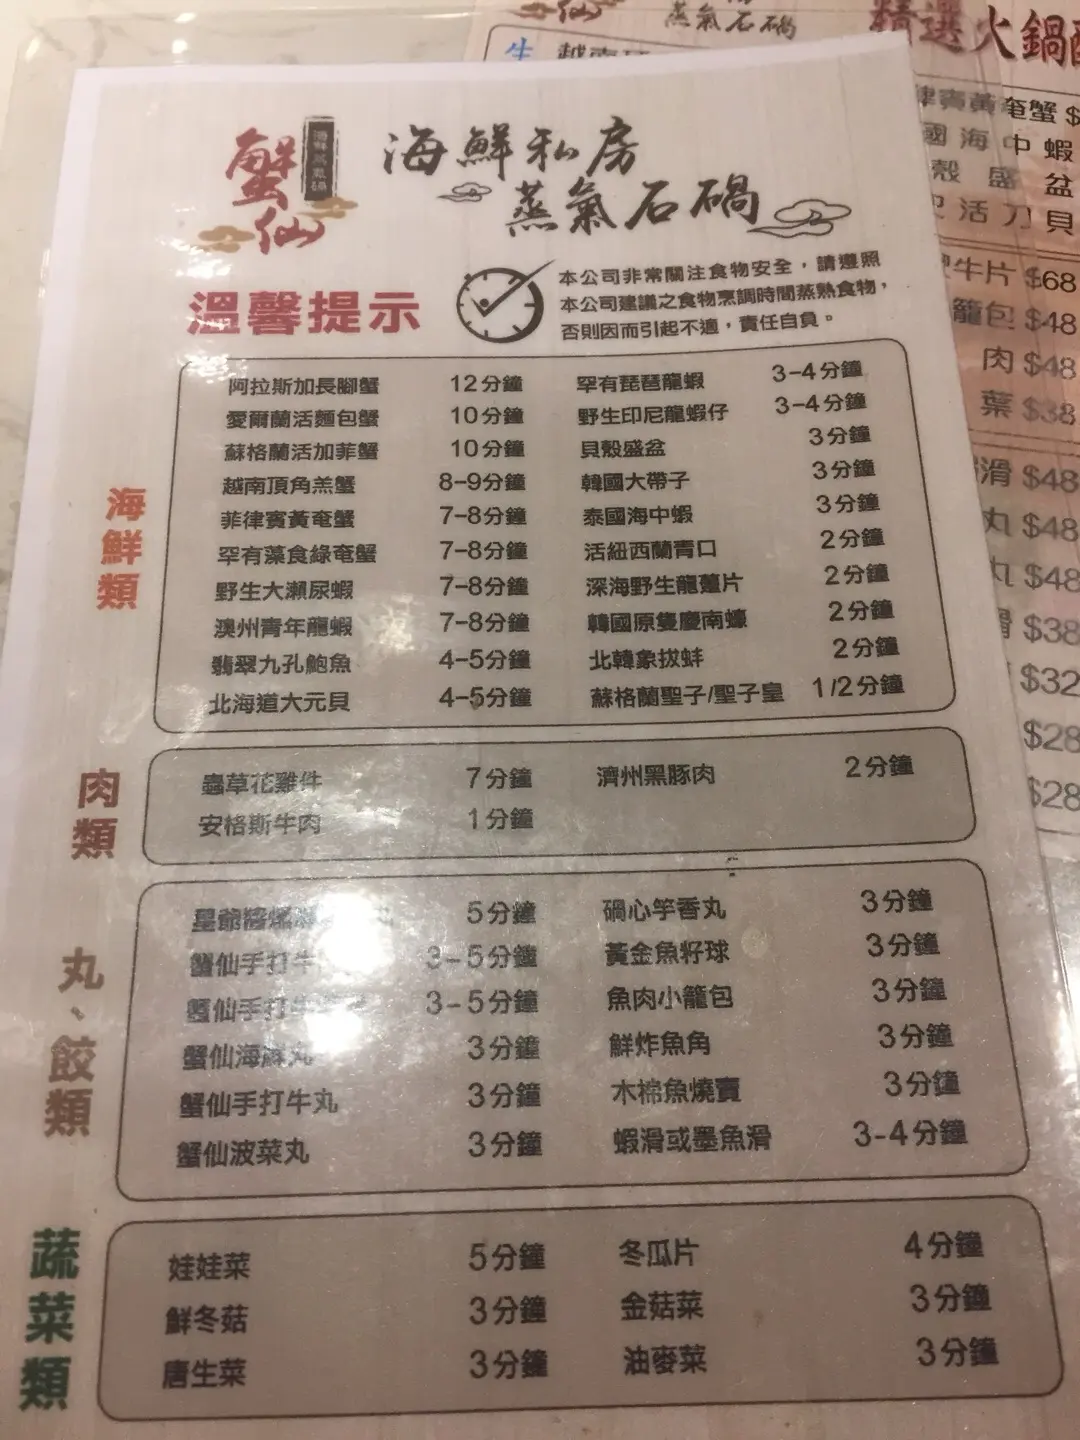 蟹仙
海鮮蒸氣鍋
海鮮私房
蒸氣石鍋
溫馨提示
本公司非常關注食物安全，請遵照
本公司建議之食物烹調時間蒸熟食物，
否則因而引起不適，責任自負。
海鮮類
阿拉斯加長腳蟹 12分鐘 罕有琵琶龍蝦 3-4分鐘
愛爾蘭活麵包蟹 10分鐘 野生印尼龍蝦仔 3-4分鐘
蘇格蘭活加菲蟹 10分鐘 貝殼盛盆 3分鐘
越南頂角羔蟹 8-9分鐘 韓國大帶子 3分鐘
菲律賓黃奄蟹 7-8分鐘 泰國海中蝦 3分鐘
罕有藻食綠奄蟹 7-8分鐘 活紐西蘭青口 2分鐘
野生大瀨尿蝦 7-8分鐘 深海野生龍躉片 2分鐘
澳州青年龍蝦 7-8分鐘 韓國原隻慶南蠔 2分鐘
翡翠九孔鮑魚 4-5分鐘 北韓象拔蚌 2分鐘
北海道大元貝 4-5分鐘 蘇格蘭聖子/聖子皇 1/2分鐘
肉類
蟲草花雞件 7分鐘 濟州黑豚肉 2分鐘
安格斯牛肉 1分鐘
丸、餃類
皇爺醬爆 丸 5分鐘 碢心竽香丸 3分鐘
蟹仙手打牛 3-5分鐘 黃金魚籽球 3分鐘
蟹仙手打牛 3-5分鐘 魚肉小籠包 3分鐘
蟹仙海 丸 3分鐘 鮮炸魚角 3分鐘
蟹仙手打牛丸 3分鐘 木棉魚燒賣 3分鐘
蟹仙波菜丸 3分鐘 蝦滑或墨魚滑 3-4分鐘
蔬菜類
娃娃菜 5分鐘 冬瓜片 4分鐘
鮮冬菇 3分鐘 金菇菜 3分鐘
唐生菜 3分鐘 油麥菜 3分鐘
蒸氣石鍋
精選火鍋
生 越南
律賓黃奄蟹 $
國海中蝦
殼盛盆
活刀貝
牛片 $68
籠包 $48
肉 $48
葉 $38
滑 $48
丸 $48
丸 $48
滑 $38
$32
$28
$28